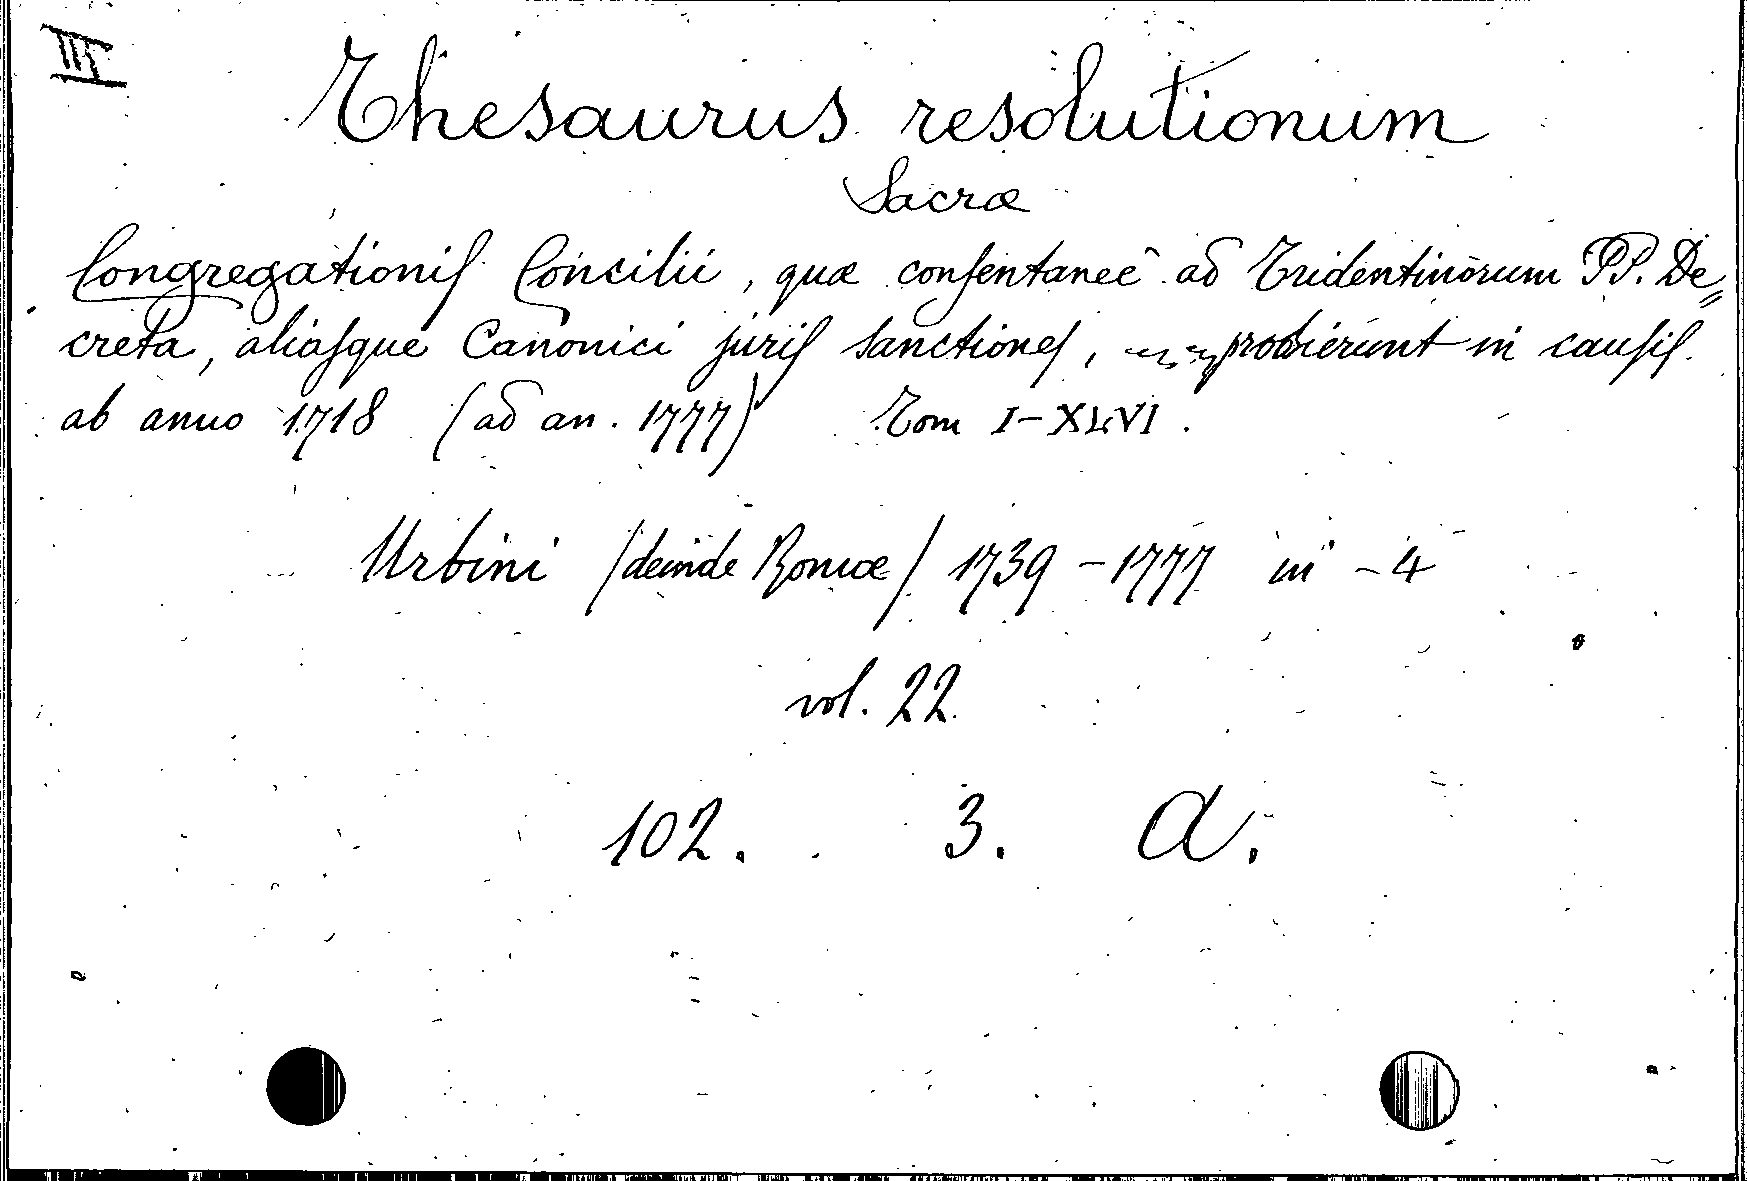 III
Thesaurus resolutionum
Sacræ
Congregationiſ Concilii, quæ conſentanee ad Tridentinorum PP. De„
creta, aliaſque Canonici juriſ sanctioneſ, prodierunt in cauſiſ.
ab anno 1718 (ad an. 1777) Tom I-XLVI.
Urbini /deinde Romæ/ 1739-1777 in -4
vol. 22
102. 3. A.